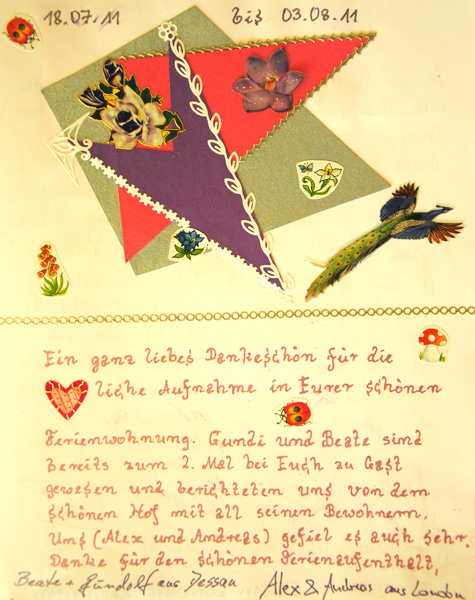 18.07.11 bis 03.08.11
Ein ganz liebes Dankeschön für die
liche Aufnahme in Eurer schönen
Ferienwohnung. Gundi und Beate sind
bereits zum 2. Mal bei Euch zu Gast
gewesen und berichteten uns von dem
schönen Hof mit all seinen Bewohnern.
Uns (Alex und Andreas) gefiel es auch sehr.
Danke für den schönen Ferienaufenthalt,
Beate + Gundolf aus Dessau Alex & Andreas aus London